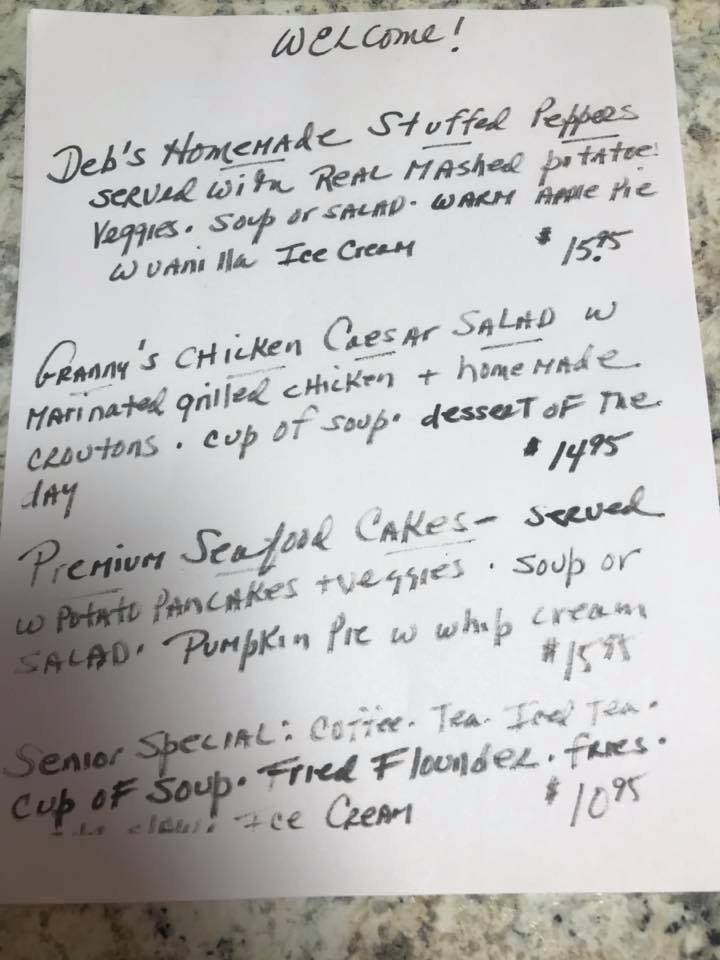 WELCOME!
Deb's Homemade Stuffed Peppers
served with REAL MAshed potatoe
Veggies. Soup or SALAD. WARM Apple Pie
w vanilla Ice Cream $15.95
GRANNy's CHicken Caesar SALAD w
MARinated grilled chicken + homemade
CROUTONS. cup of soup. dessert of the
day $14.95
Premium Seafood CAKes - served
w PotAto PANCAKes + veggies. Soup or
SALAD. Pumpkin Pie w whip cream
$15.95
Senior Special: Coffee. Tea. Iced Tea.
Cup OF Soup. Fried Flounder. fries.
slaw. Ice Cream $10.95